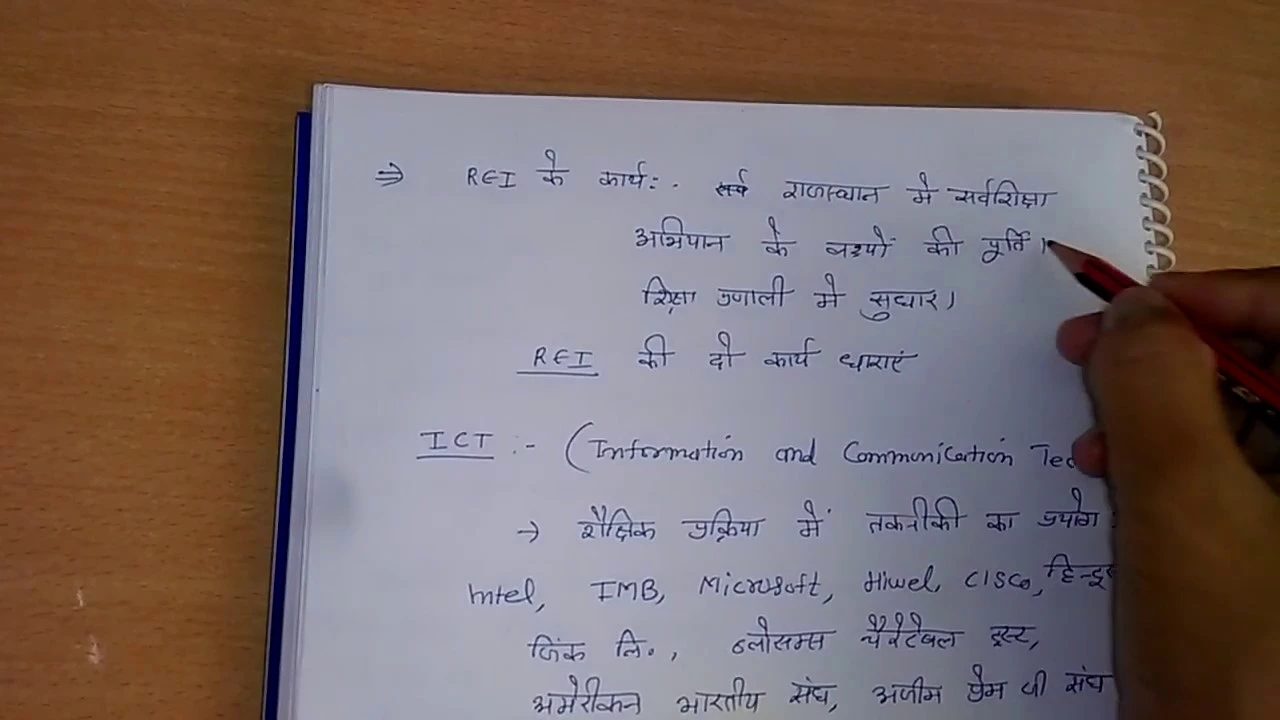 ⇒ REI के कार्य:- राजस्थान मे सर्वशिक्षा
अभियान के लक्ष्यों की पूर्ति।
शिक्षा प्रणाली मे सुधार।
REI की दो कार्य धाराएं
ICT :- (Information and Communication Tec
→ शैक्षिक प्रक्रिया में तकनीकी का प्रयोग :
Intel, IMB, Microsoft, Hiwel, CISCO, हिन्दु
जिंक लि., ब्लोसम्स चैरेटेबल ट्रस्ट,
अमेरीकन भारतीय संघ, अजीम प्रेम जी संघ